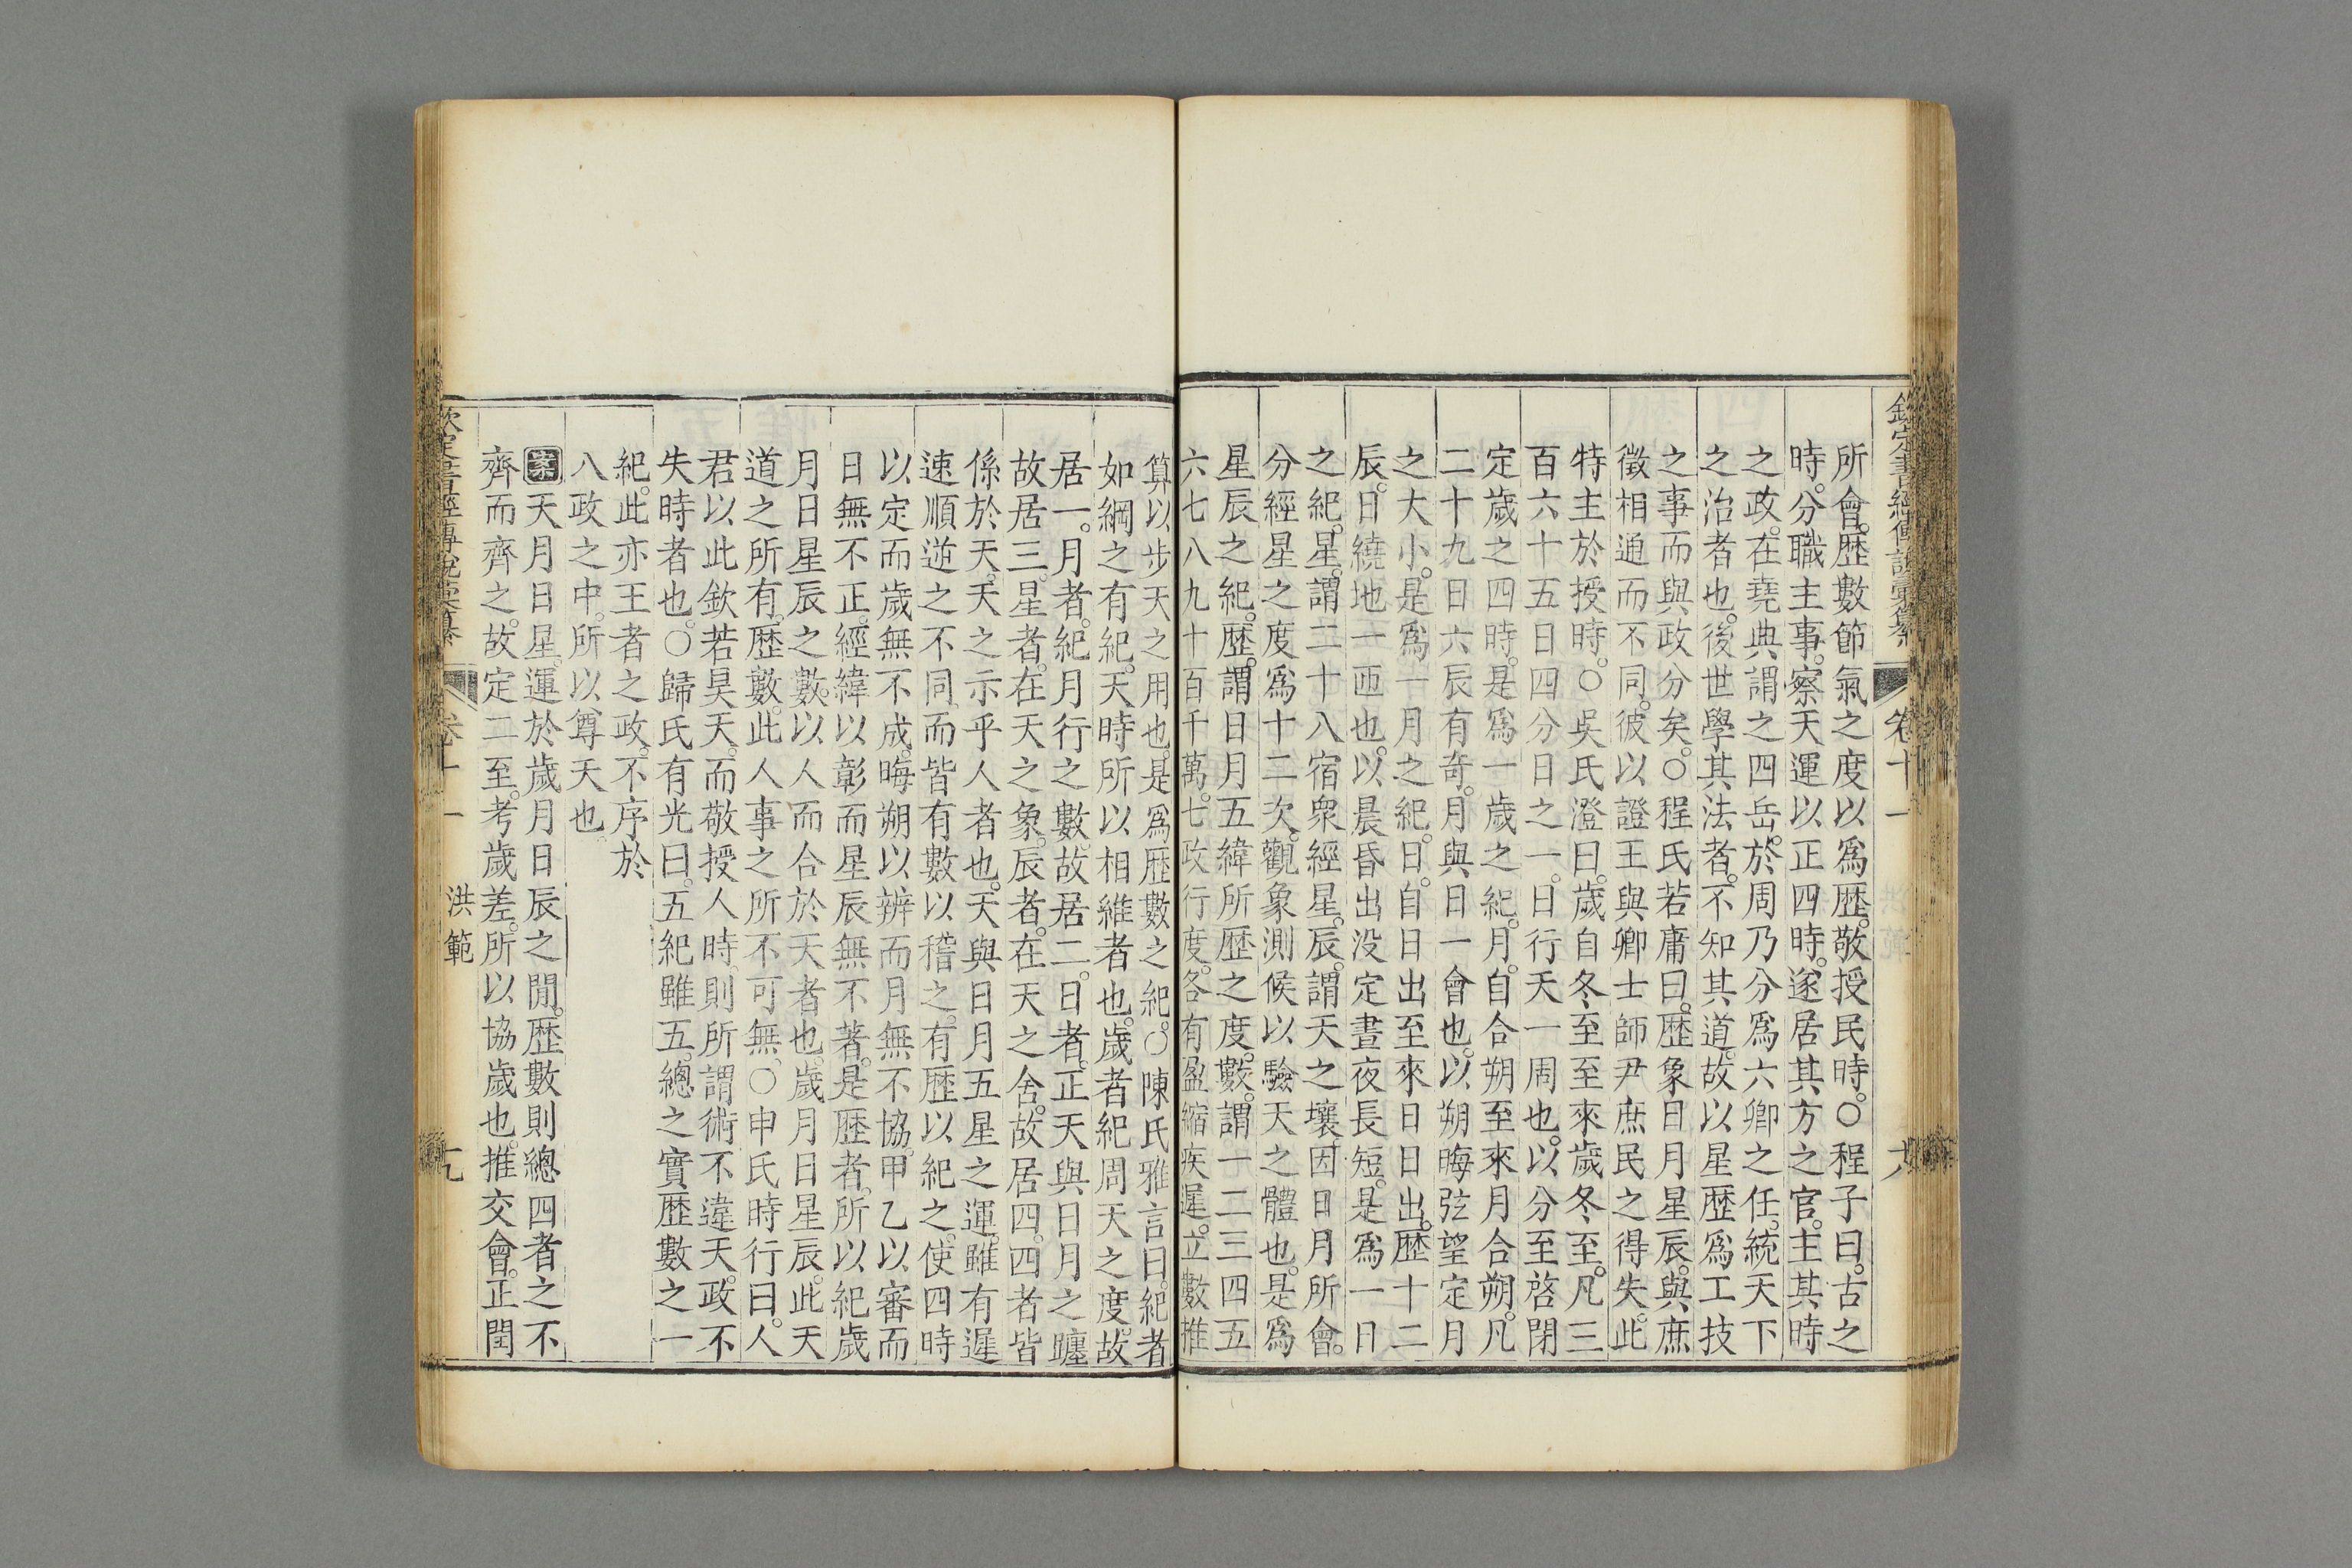 欽定書經傳說彙纂 卷十一
所會。歴數節氣之度以爲歴。敬授民時。○程子曰。古之
時。分職主事。察天運以正四時。遂居其方之官。主其時
之政。在堯典謂之四岳。於周乃分爲六卿之任。統天下
之治者也。後世學其法者。不知其道。故以星歴爲工技
之事而與政分矣。○程氏若庸曰。歴象日月星辰。與庶
徵相通而不同。彼以證王與卿士師尹庶民之得失。此
特主於授時。○吳氏澄曰。歲自冬至至來歲冬至。凡三
百六十五日四分日之一。日行天一周也。以分至啓閉
定歲之四時。是爲一歲之紀。月。自合朔至來月合朔。凡
二十九日六辰有奇。月與日一會也。以朔晦弦望定月
之大小。是爲一月之紀。日。自日出至來日日出。歴十二
辰。日繞地一匝也。以晨昏出没定晝夜長短。是爲一日
之紀。星。謂二十八宿衆經星。辰。謂天之壤。因日月所會。
分經星之度爲十二次。觀象測候以驗天之體也。是爲
星辰之紀。歴。謂日月五緯所歴之度。數。謂一二三四五
六七八九十百千萬。七政行度。各有盈縮疾遲。立數推
算以步天之用也。是爲歴數之紀。○陳氏雅言曰。紀者
如綱之有紀。天時所以相維者也。歲者紀周天之度。故
居一。月者。紀月行之數。故居二。日者。正天與日月之躔
故居三。星者。在天之象。辰者。在天之舍。故居四。四者皆
係於天。天之示乎人者也。天與日月五星之運。雖有遲
速順逆之不同。而皆有數以稽之。有歴以紀之。使四時
以定而歲無不成。晦朔以辨而月無不協。甲乙以審而
日無不正。經緯以彰而星辰無不著。是歴者。所以紀歲
月日星辰之數。以人而合於天者也。歲月日星辰。此天
道之所有。歴數。此人事之所不可無。○申氏時行曰。人
君以此欽若昊天。而敬授人時。則所謂術不違天。政不
失時者也。○歸氏有光曰。五紀雖五。總之實歴數之一
紀。此亦王者之政。不序於
八政之中。所以尊天也。
案天月日星。運於歲月日辰之閒。歴數則總四者之不
齊而齊之。故定二至。考歲差。所以協歲也。推交會。正閏
欽定書經傳說彙纂 卷十一 洪範 九